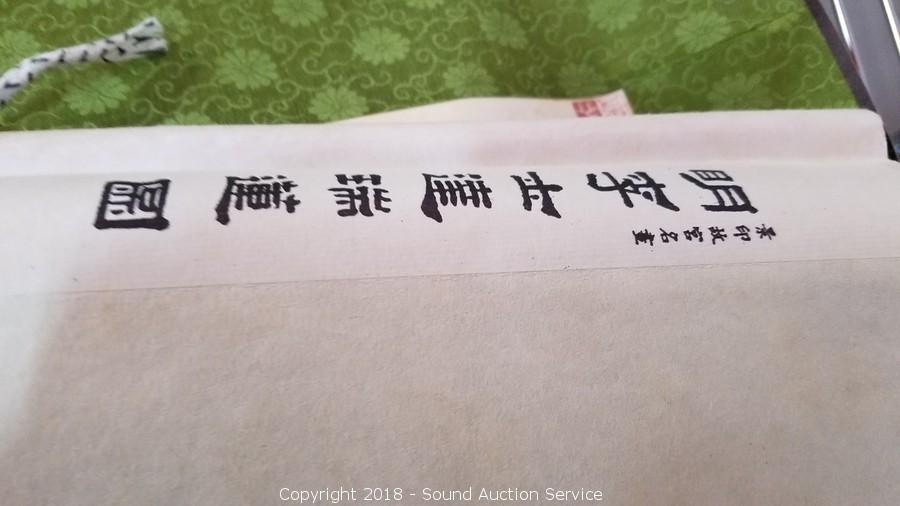 明李士達瑞蓮圖
景印故宮名畫
Copyright 2018 - Sound Auction Service